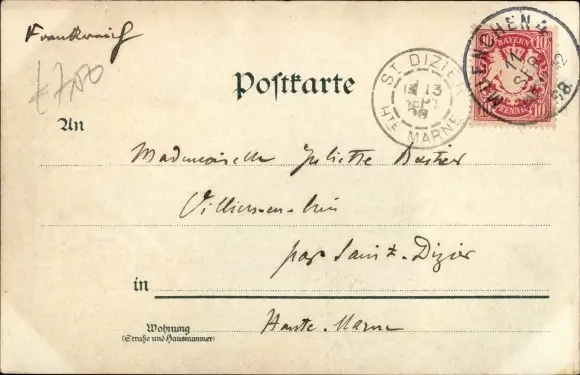 Frankreich
£7.00
Postkarte
ST DIZIER
13
SEPT
98
HTE MARNE
MUENCHEN
12
SEP
98.
10 BAYERN 10
PFENNIG
An
Mademoiselle Juliette Bastier
Villiers-en-Lieu
par Saint-Dizier
in
Haute-Marne
Wohnung
(Straße und Hausnummer)